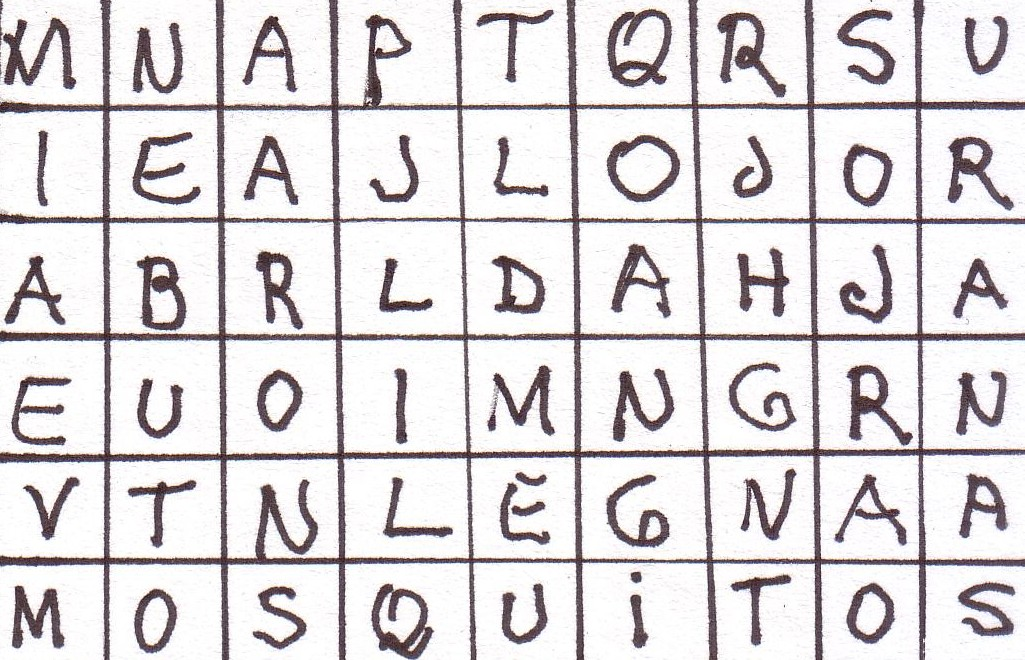 M N A P T Q R S U
I E A J L O J O R
A B R L D A H J A
E U O I M N G R N
V T N L E G N A A
M O S Q U i T O S